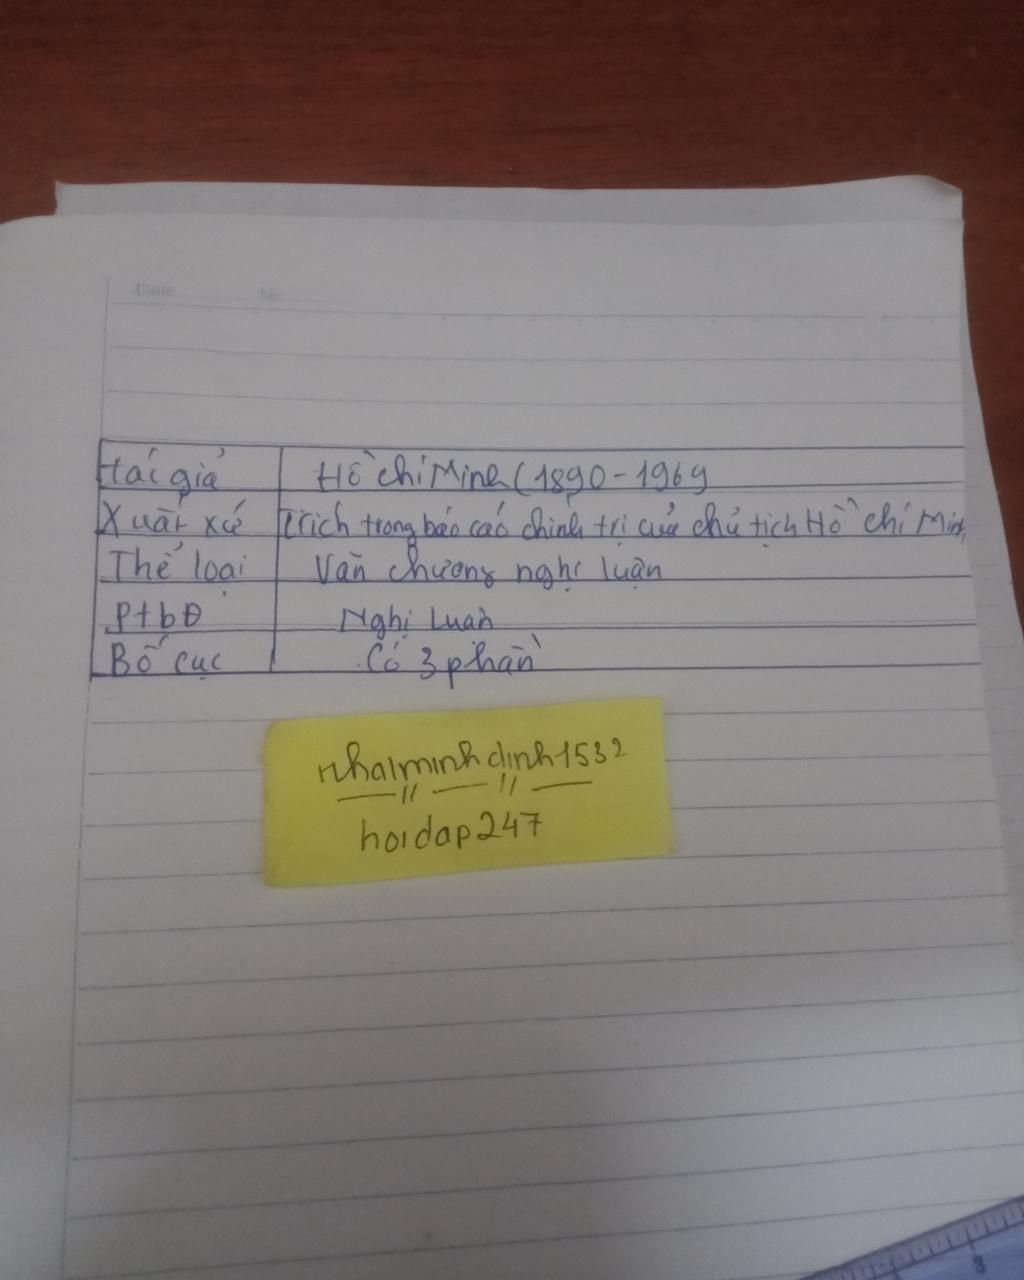 Date No
tác giả Hồ Chí Minh (1890-1969
Xuất xứ Trích trong báo cáo chính trị của chủ tịch Hồ Chí Minh
Thể loại Văn chương nghị luận
PtbĐ Nghị Luận
Bố cục Có 3 phần
nhaiminhdinh1532
hoidap247
9